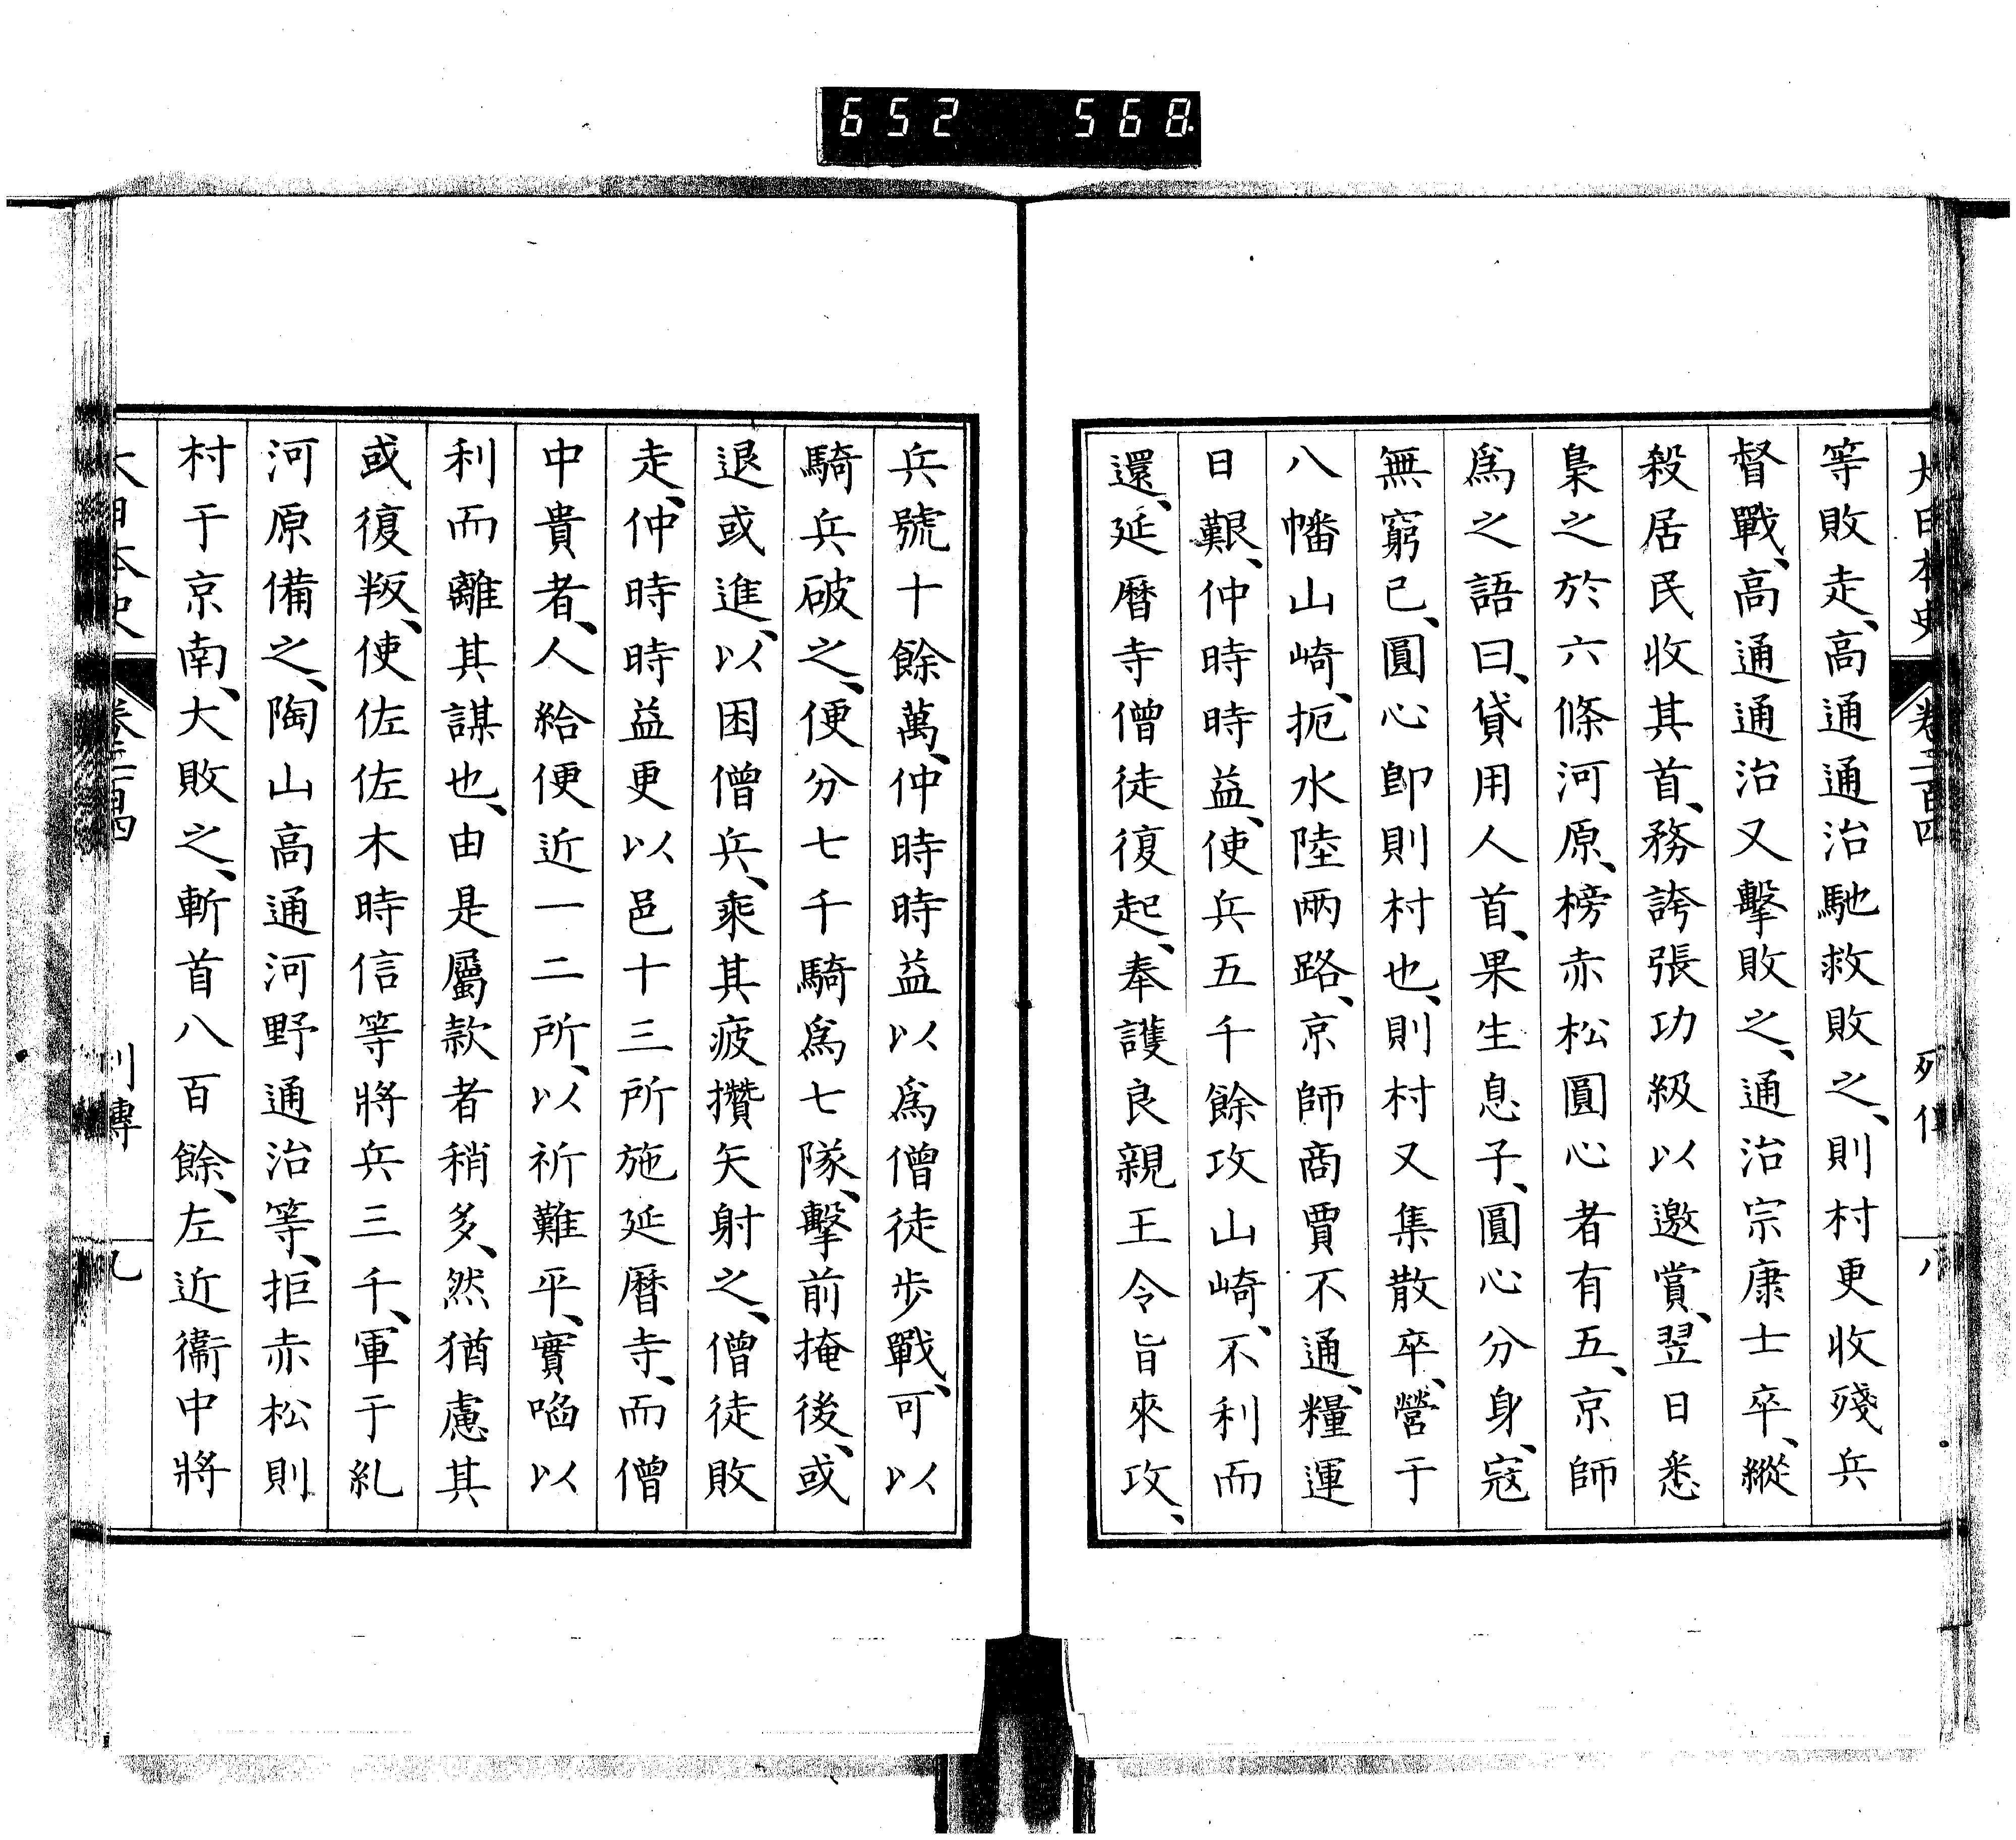 652 568
大日本史 卷二百四 列傳 八
等敗走、高通通治馳救敗之、則村更收殘兵
督戰、高通通治又擊敗之、通治宗康士卒、縱
殺居民收其首、務誇張功級以邀賞、翌日悉
梟之於六條河原、榜赤松圓心者有五、京師
爲之語曰、貸用人首、果生息子、圓心分身、寇
無窮已、圓心卽則村也、則村又集散卒、營于
八幡山崎、扼水陸兩路、京師商賈不通、糧運
日艱、仲時時益、使兵五千餘攻山崎、不利而
還、延曆寺僧徒復起、奉護良親王令旨來攻、
兵號十餘萬、仲時時益以爲僧徒步戰、可以
騎兵破之、便分七千騎爲七隊、擊前掩後、或
退或進、以困僧兵、乘其疲攢矢射之、僧徒敗
走、仲時時益更以邑十三所施延曆寺、而僧
中貴者、人給便近一二所、以祈難平、實啗以
利而離其謀也、由是屬款者稍多、然猶慮其
或復叛、使佐佐木時信等將兵三千、軍于糺
河原備之、陶山高通河野通治等、拒赤松則
村于京南、大敗之、斬首八百餘、左近衞中將
大日本史 卷二百四 列傳 九